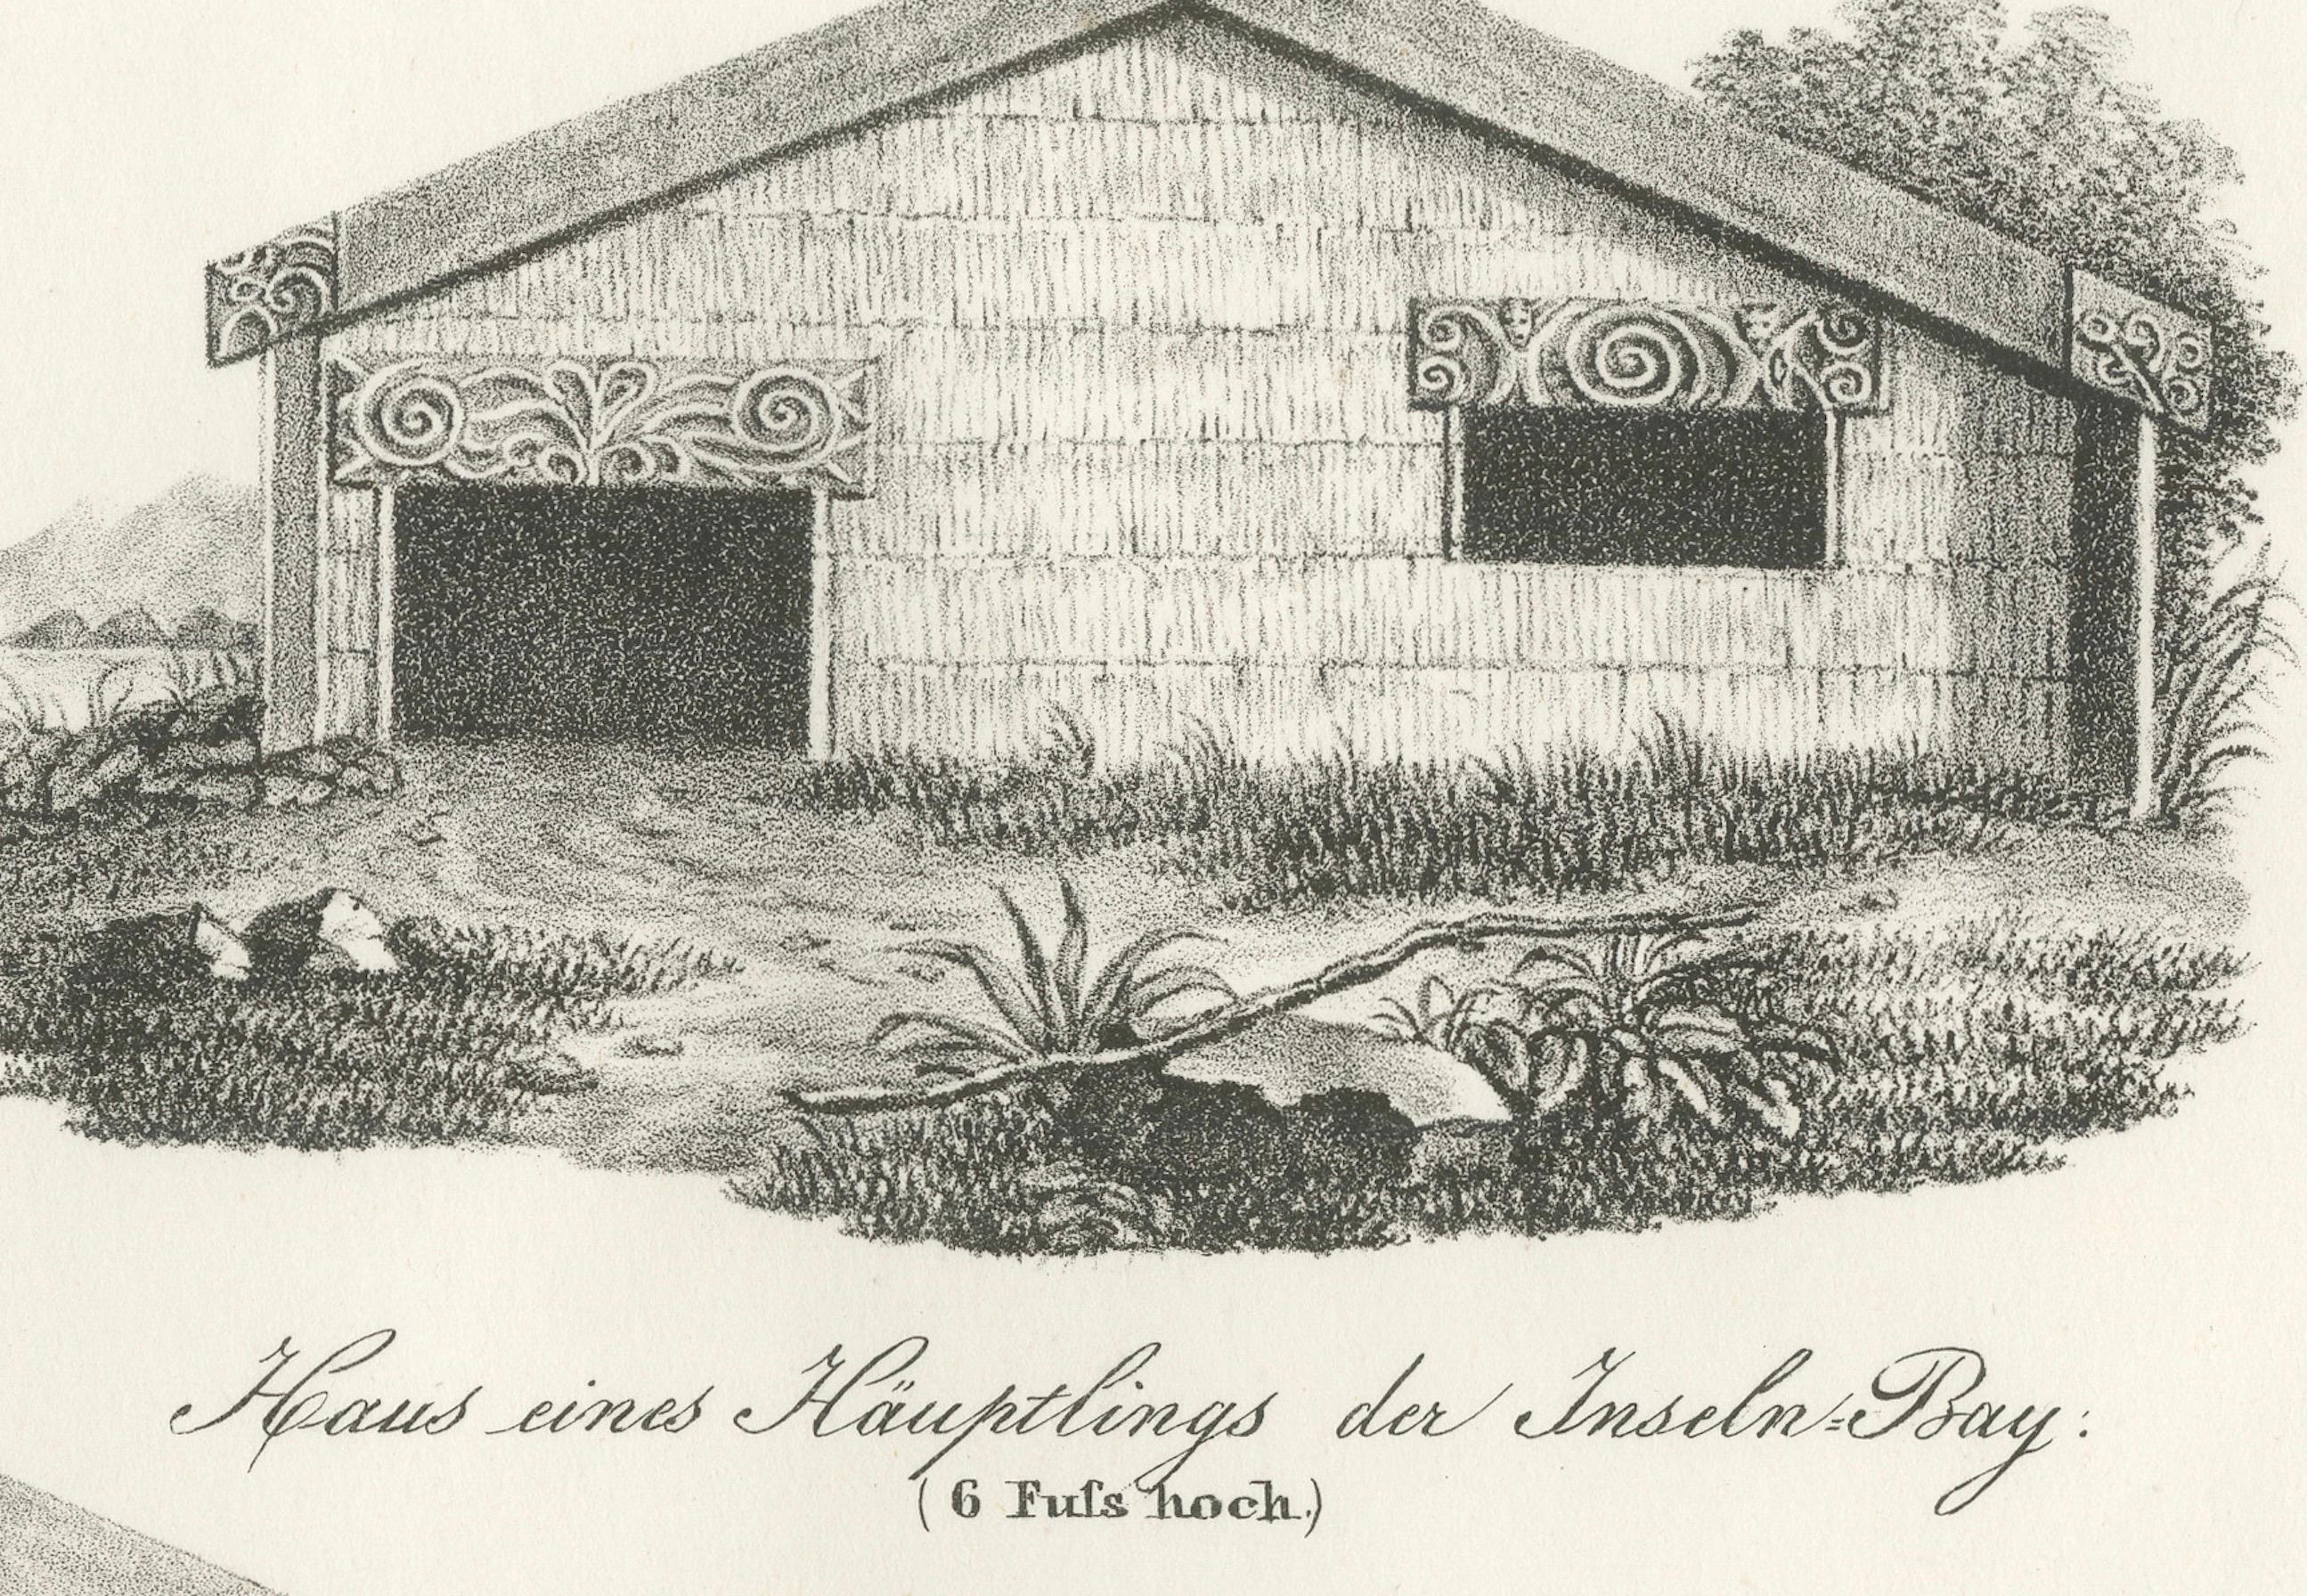 Haus eines Häuptlings der Inseln=Bay:
( 6 Fuſs hoch.)